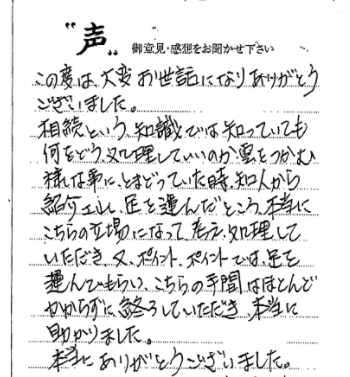 "声"
御意見・感想をお聞かせ下さい
この度は、大変お世話になりありがとう
ございました。
相続という、知識では知っていても
何をどう、処理していいのか雲をつかむ
様な事に、とまどっていた時、知人から
紹介エし、足を運んだところ、本当に
こちらの立場になって、考え、処理して
いただき、又、ポイント、ポイントでは、足を
運んでもらい、こちらの手間はほとんど
かからずに、終ろしていただき、本当に
助かりました。
本当にありがとうございました。